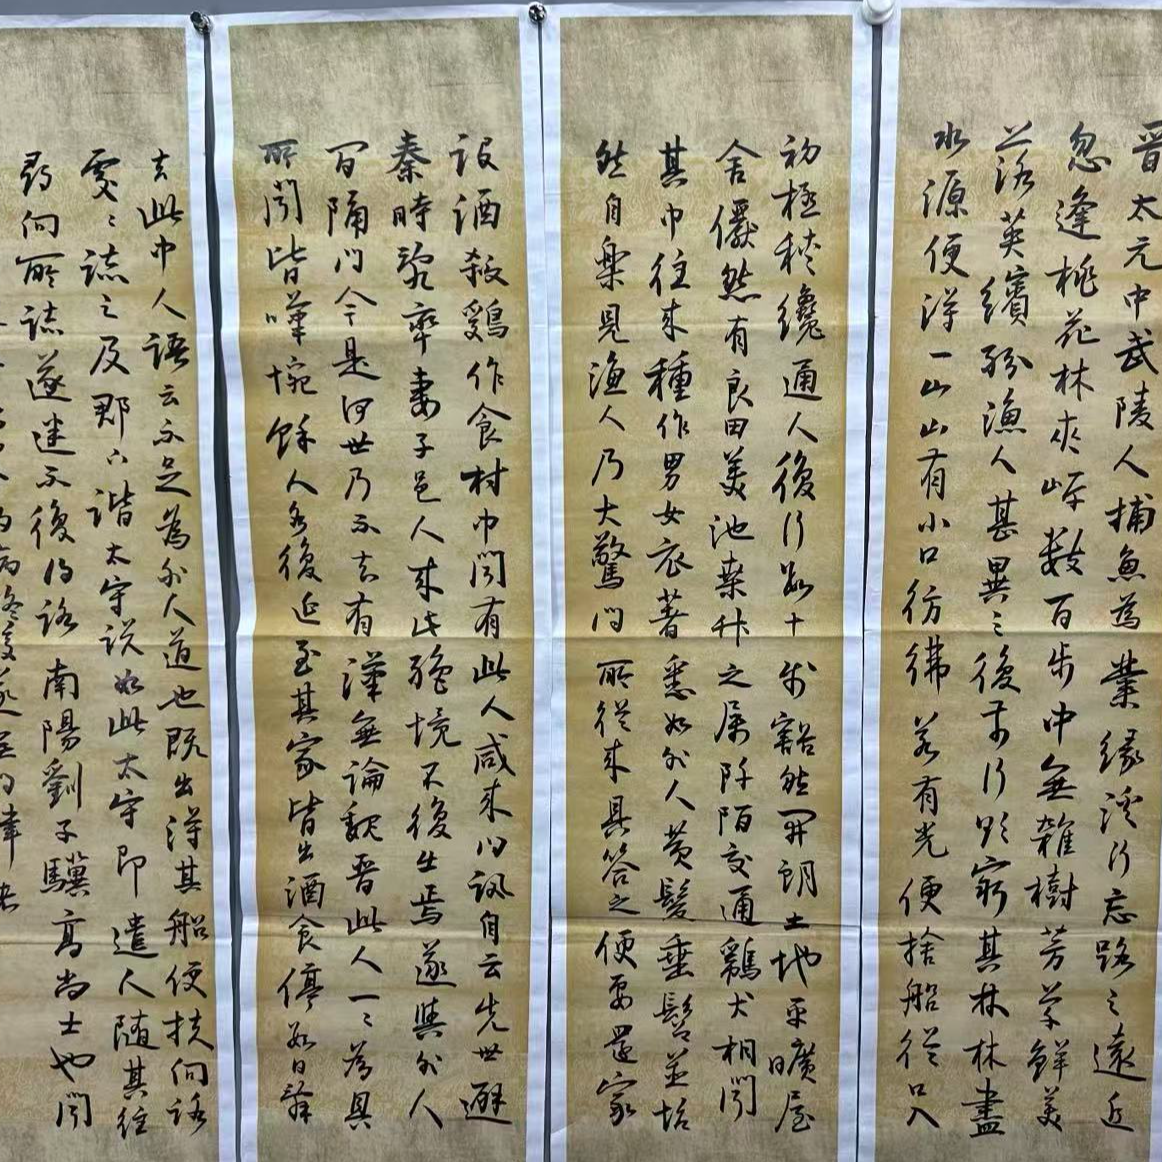 晋太元中武陵人捕魚為業緣溪行忘路之遠近
忽逢桃花林夾岸數百步中無雜樹芳草鮮美
落英繽紛漁人甚異之復前行欲窮其林林盡
水源便得一山山有小口彷彿若有光便捨船從口入
初極狹纔通人復行數十步豁然開朗土地平曠屋
舍儼然有良田美池桑竹之屬阡陌交通鷄犬相聞
其中往來種作男女衣著悉如外人黃髮垂髫並怡
然自樂見漁人乃大驚問所從來具答之便要還家
設酒殺鷄作食村中聞有此人咸來問訊自云先世避
秦時亂率妻子邑人來此絕境不復出焉遂與外人
間隔問今是何世乃不知有漢無論魏晋此人一〻為具
所聞皆嘆惋餘人各復延至其家皆出酒食停數日辭
去此中人語云不足為外人道也既出得其船便扶向路
處〻誌之及郡下詣太守說如此太守即遣人隨其往
尋向所誌遂迷不復得路南陽劉子驥高尚士也聞